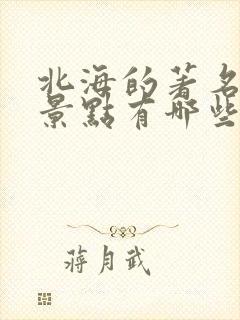 北海的著名
景點有哪些
蔣月武